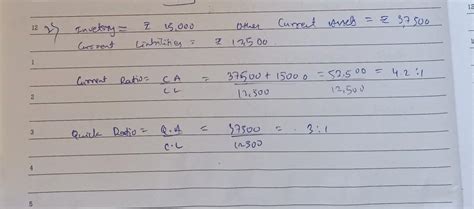 12 2) Inventory = ₹ 15,000 Other Current Assets = ₹ 37,500
Current Liabilities = ₹ 12,500.
1
Current Ratio = C A = 37500 + 15000 = 52,500 = 4.2 : 1
2 C L 12,500 12,500
3 Quick Ratio = Q.A = 37500 = . 3 : 1
C.L 12500
4
5